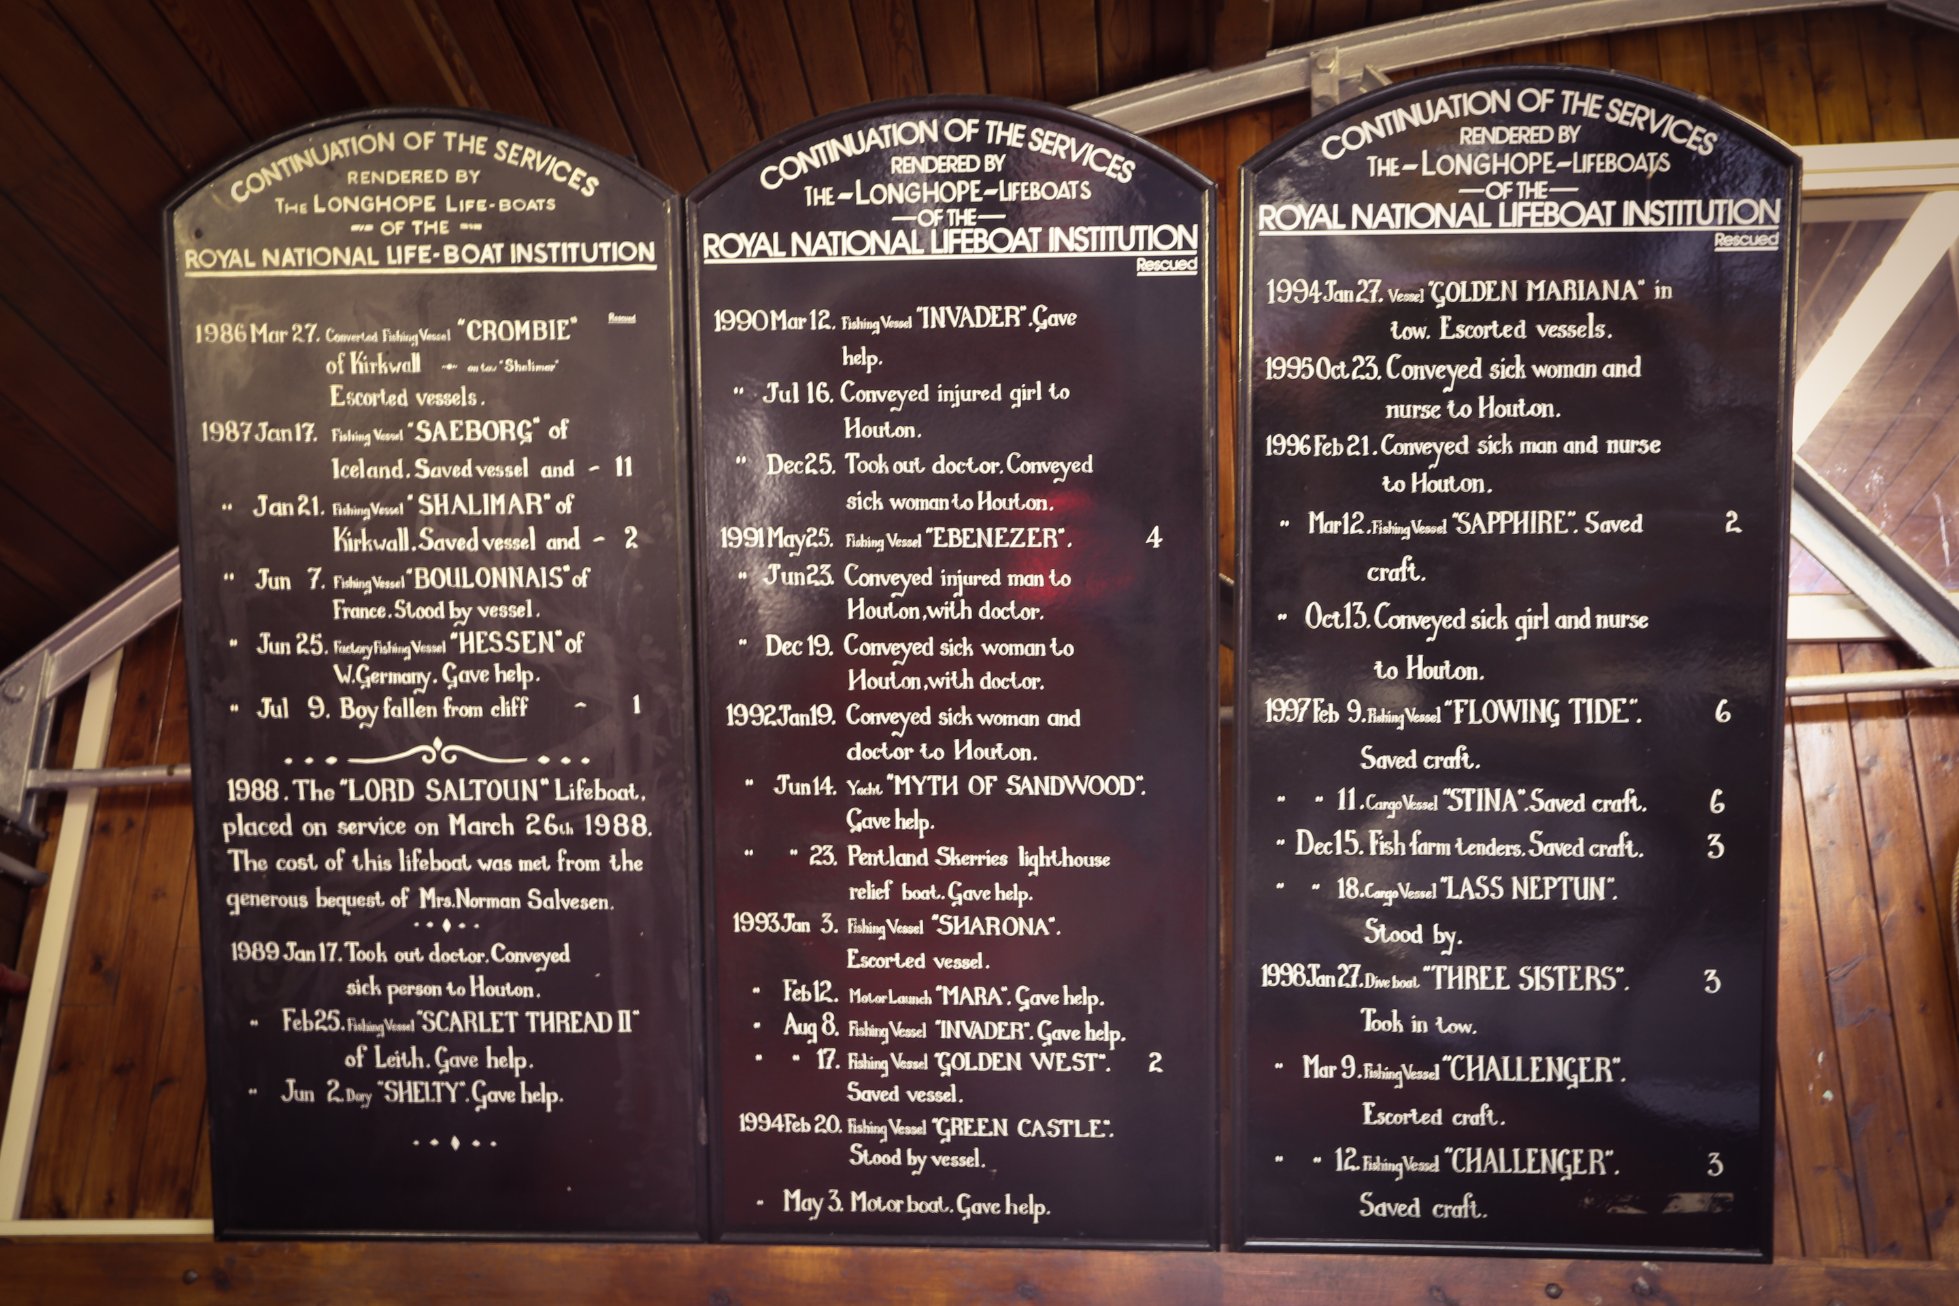 CONTINUATION OF THE SERVICES
RENDERED BY
THE LONGHOPE LIFE-BOATS
OF THE
ROYAL NATIONAL LIFE-BOAT INSTITUTION
Rescued
1986 Mar 27. Converted Fishing Vessel "CROMBIE"
of Kirkwall on tow "Shalimar"
Escorted vessels.
1987 Jan 17. Fishing Vessel "SAEBORG" of
Iceland. Saved vessel and - 11
" Jan 21. Fishing Vessel "SHALIMAR" of
Kirkwall. Saved vessel and - 2
" Jun 7. Fishing Vessel "BOULONNAIS" of
France. Stood by vessel.
" Jun 25. Factory Fishing Vessel "HESSEN" of
W. Germany. Gave help.
" Jul 9. Boy fallen from cliff - 1
1988. The "LORD SALTOUN" Lifeboat,
placed on service on March 26th 1988.
The cost of this lifeboat was met from the
generous bequest of Mrs. Norman Salvesen.
1989 Jan 17. Took out doctor. Conveyed
sick person to Houton.
" Feb 25. Fishing Vessel "SCARLET THREAD II"
of Leith. Gave help.
" Jun 2. Dory "SHELTY". Gave help.
CONTINUATION OF THE SERVICES
RENDERED BY
THE-LONGHOPE-LIFEBOATS
—OF THE—
ROYAL NATIONAL LIFEBOAT INSTITUTION
Rescued
1990 Mar 12. Fishing Vessel "INVADER". Gave
help.
" Jul 16. Conveyed injured girl to
Houton.
" Dec 25. Took out doctor. Conveyed
sick woman to Houton.
1991 May 25. Fishing Vessel "EBENEZER". 4
" Jun 23. Conveyed injured man to
Houton, with doctor.
" Dec 19. Conveyed sick woman to
Houton, with doctor.
1992 Jan 19. Conveyed sick woman and
doctor to Houton.
" Jun 14. Yacht "MYTH OF SANDWOOD".
Gave help.
" " 23. Pentland Skerries lighthouse
relief boat. Gave help.
1993 Jan 3. Fishing Vessel "SHARONA".
Escorted vessel.
" Feb 12. Motor Launch "MARA". Gave help.
" Aug 8. Fishing Vessel "INVADER". Gave help.
" " 17. Fishing Vessel "GOLDEN WEST". 2
Saved vessel.
1994 Feb 20. Fishing Vessel "GREEN CASTLE".
Stood by vessel.
" May 3. Motor boat. Gave help.
CONTINUATION OF THE SERVICES
RENDERED BY
THE-LONGHOPE-LIFEBOATS
—OF THE—
ROYAL NATIONAL LIFEBOAT INSTITUTION
Rescued
1994 Jan 27. Vessel "GOLDEN MARIANA" in
tow. Escorted vessels.
1995 Oct 23. Conveyed sick woman and
nurse to Houton.
1996 Feb 21. Conveyed sick man and nurse
to Houton.
" Mar 12. Fishing Vessel "SAPPHIRE". Saved 2
craft.
" Oct 13. Conveyed sick girl and nurse
to Houton.
1997 Feb 9. Fishing Vessel "FLOWING TIDE". 6
Saved craft.
" " 11. Cargo Vessel "STINA". Saved craft. 6
" Dec 15. Fish farm tenders. Saved craft. 3
" " 18. Cargo Vessel "LASS NEPTUN".
Stood by.
1998 Jan 27. Dive boat "THREE SISTERS". 3
Took in tow.
" Mar 9. Fishing Vessel "CHALLENGER".
Escorted craft.
" " 12. Fishing Vessel "CHALLENGER". 3
Saved craft.